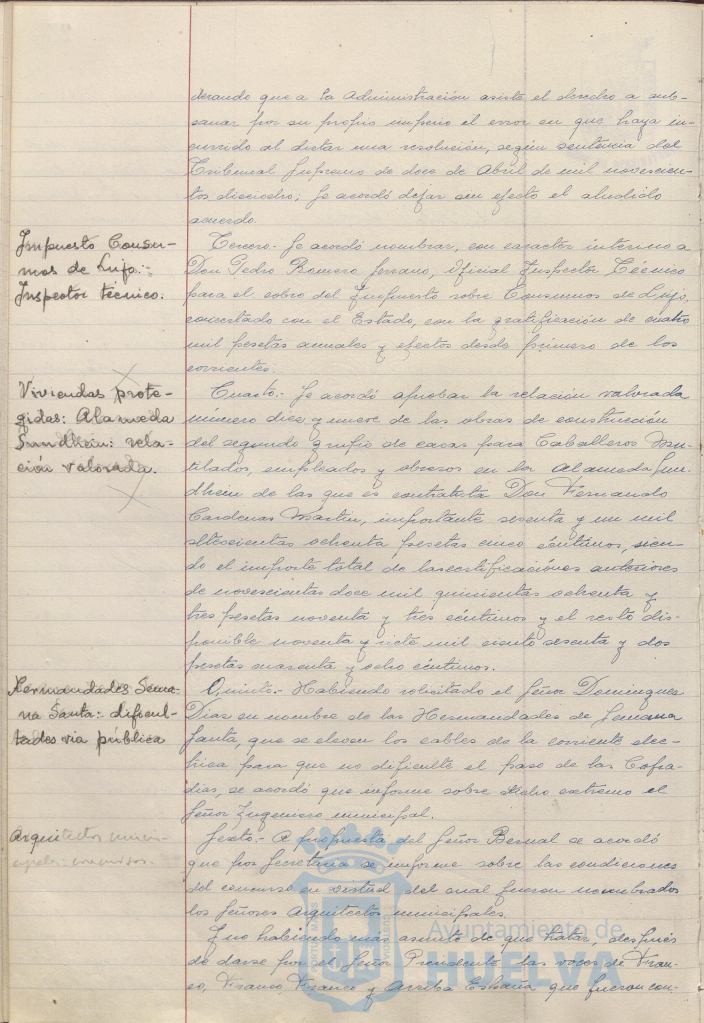 derando que a la Administración asiste el derecho a sub-
sanar por su propio imperio el error en que haya in-
currido al dictar una resolución, según sentencia del
Tribunal Supremo de doce de Abril de mil novescien-
tos dieciocho; se acordó dejar sin efecto el aludido
acuerdo.
Impuesto Consu-
mos de Lujo:
Inspector técnico.
Tercero.- Se acordó nombrar, con caracter interino a
Don Pedro Romero Lozano, Oficial Inspector Técnico
para el cobro del Impuesto sobre Consumos de Lujo,
concertado con el Estado, con la gratificación de cuatro
mil pesetas anuales y efectos desde primero de los
corrientes.
Viviendas prote-
gidas: Alameda
Sundhein: rela-
ción valorada.
Cuarto.- Se acordó aprobar la relación valorada
número diez y nueve de las obras de construcción
del segundo grupo de casas para Caballeros Mu-
tilados, empleados y obreros en la Alameda Sun-
dhein de las que es contratista Don Fernando
Cardenas Martin, importante sesenta y un mil
ochenta pesetas cinco céntimos, sien-
do el importe total de las certificaciónes anteriores
de novescientas doce mil quinientas ochenta y
tres pesetas noventa y tres céntimos y el resto dis-
ponible noventa y siete mil ciento sesenta y dos
pesetas cuarenta y ocho céntimos.
Hermandades Sema-
na Santa: dificul-
tades via pública
Quinto.- Habiendo solicitado el Señor Dominguez
Dias en nombre de las Hermandades de Semana
Santa, que se eleven los cables de la corriente elec-
trica para que no dificulte el paso de las Cofra-
dias, se acordó que informe sobre dicho extremo el
Señor Ingeniero municipal.
Arquitectos munici-
pales: concurso.
Sexto.- A propuesta del Señor Bernal se acordó
que por Secretaria se informe sobre las condiciones
del concurso en virtud del cual fueron nombrados
los Señores Arquitectos municipales.
Y no habiendo más asunto de que tratar, después
de darse por el Señor Presidente las voces de Fran-
co, Franco, Franco y Arriba España que fueron con-
Ayuntamiento de
HUELVA